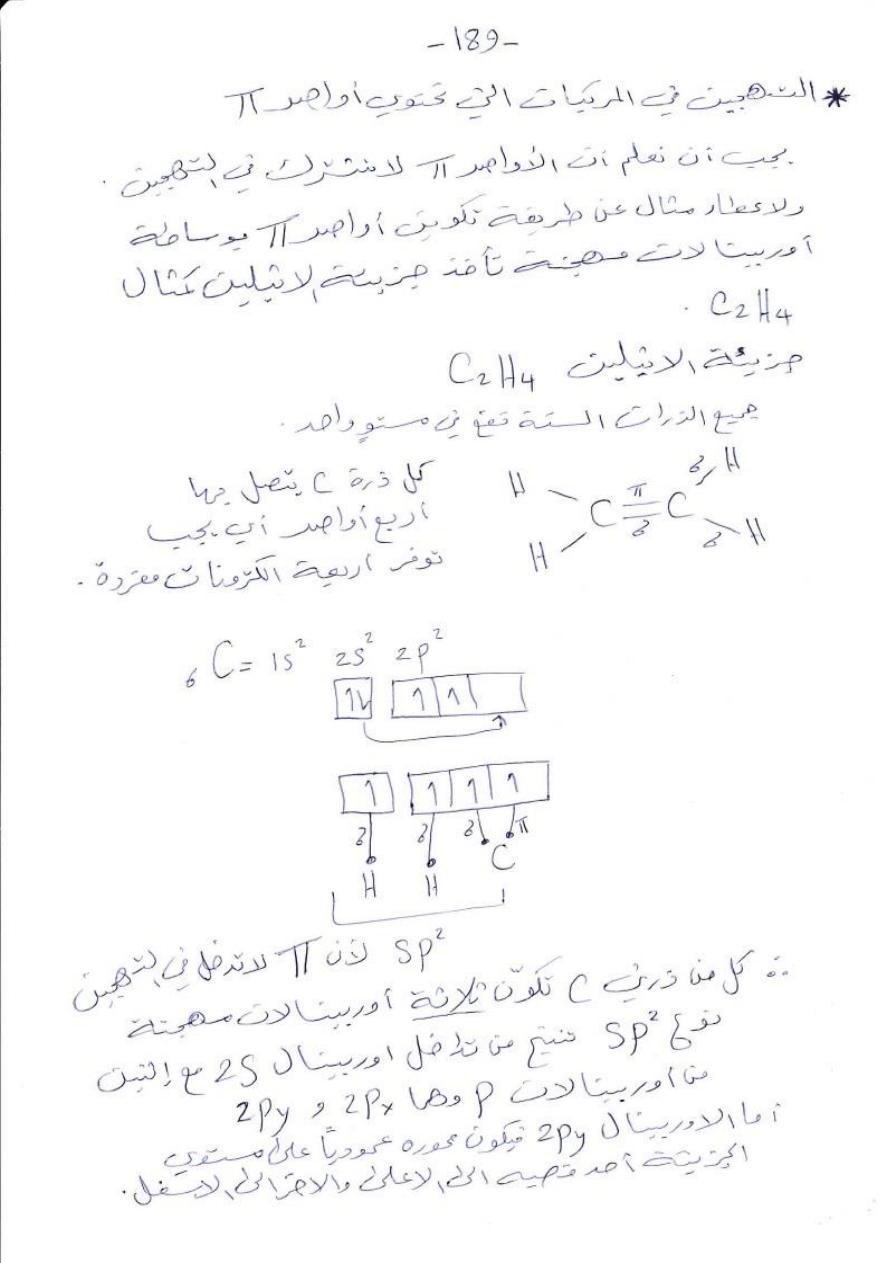 -189-
* التهجين في المركبات التي تحتوي أواصر π
يجب أن نعلم أن الأواصر π لا تشترك في التهجين .
ولاعطاء مثال عن طريقة تكوين أواصر π بوساطة
أوربيتالات مهجنة نأخذ جزيئة الاثيلين كمثال
C2H4 .
جزيئة الاثيلين C2H4
جميع الذرات الستة تقع في مستوٍ واحد .
كل ذرة C يتصل بها
أربع أواصر أي يجب
توفر أربعة الكترونات مفردة .
H H
C π C
H H
₆C = 1s² 2s² 2p²
1 1 1
1 1 1 1
π
H H C
sp² لأن π لا تدخل في التهجين
∴ كل من ذرتي C تكوّن ثلاثة أوربيتالات مهجنة
نوع sp² تنتج من تداخل اوربيتال 2S مع إثنين
من أوربيتالات P وهما 2Px و 2Py
أما الاوربيتال 2Py فيكون محوره عمودياً على مستوي
الجزيئة أحد فصيه الى الاعلى والاخر الى الاسفل .